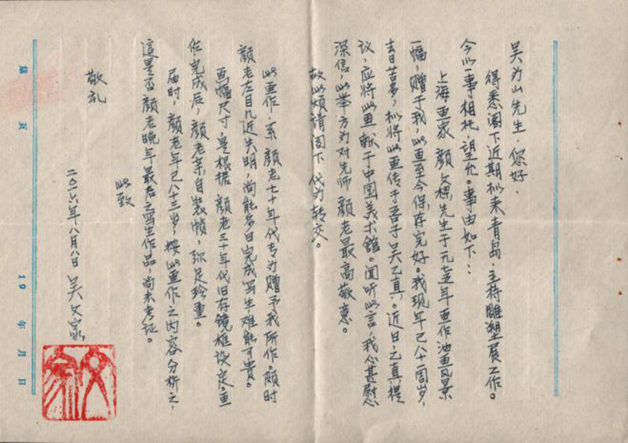 吴为山先生 您好.
得悉阁下近期拟来青岛、主持雕塑展工作。
今以一事相托、望允。事由如下：
上海画家 颜文樑先生于年画作油画风景
一幅赠于我，此画至今保存完好。我现年已八十一周岁，
去日苦多，拟将此画传于吾子吴乙真。近日，乙真提
议，应将此画献于中国美术馆。闻听此言，我心甚慰
深信，此举方为对先师 颜老最高敬意。
故此烦请阁下代为转交。
此画作，系 颜老七十年代专为赠予我所作。时
颜老左目几近失明，尚能多日完成写生，难能可贵。
画幅尺寸，是根据 颜老三十年代旧存镜框设定。画
作完成后，颜老亲自装帧，弥足珍重。
届时，颜老年已八十三岁，按此画作之内容分析之，
這是否颜老晚年最后之写生作品，尚未考证。
此致
敬礼
二〇一六年八月八日 吴文
页
19 年 月 日